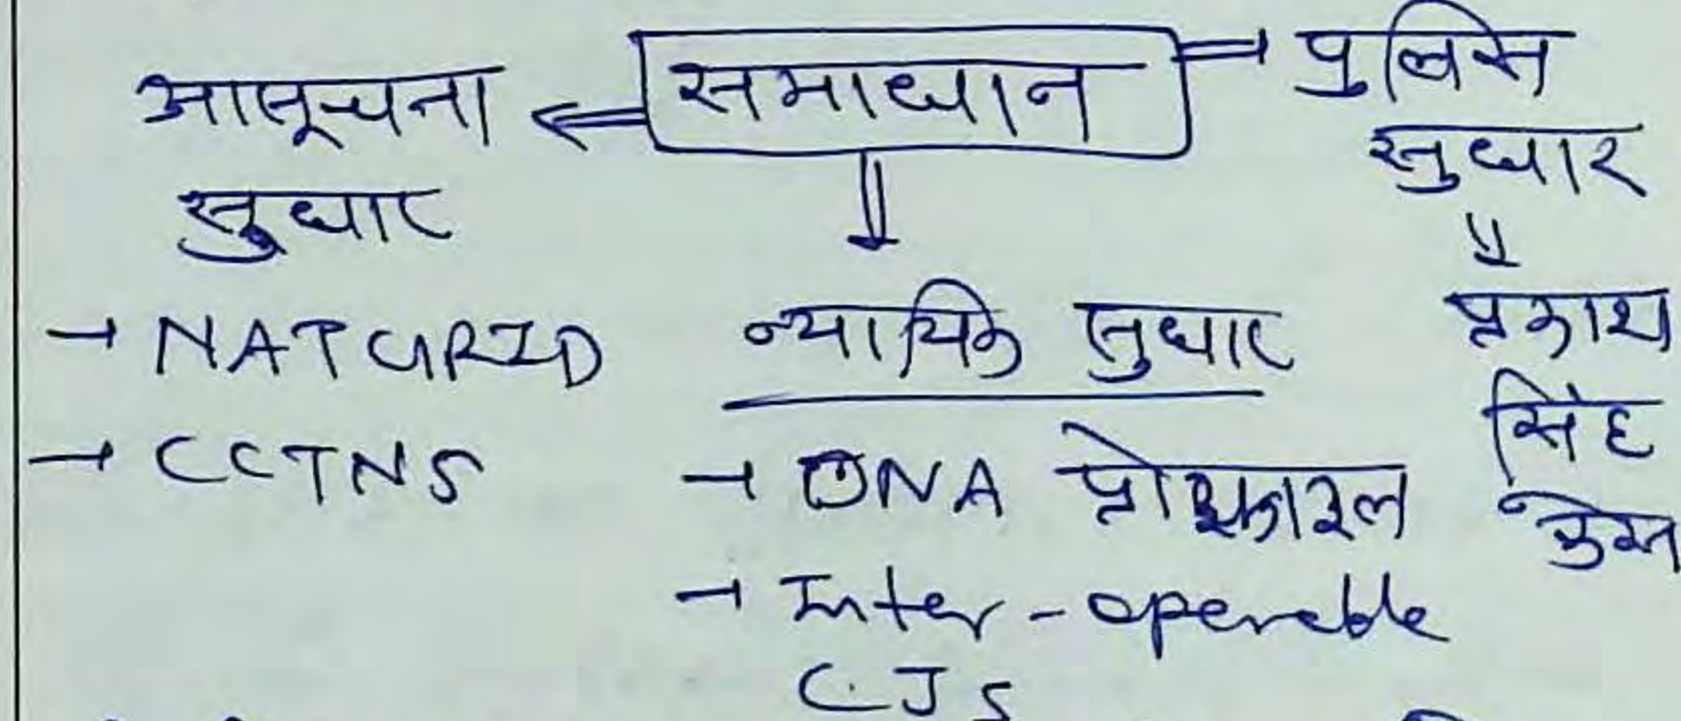 समाधान
आसूचना
सुधार
→ NATGRID
→ CCTNS
न्यायिक सुधार
→ DNA प्रोफाइल
→ Inter-operable
CJS
पुलिस
सुधार
प्रकाश
सिंह
केस